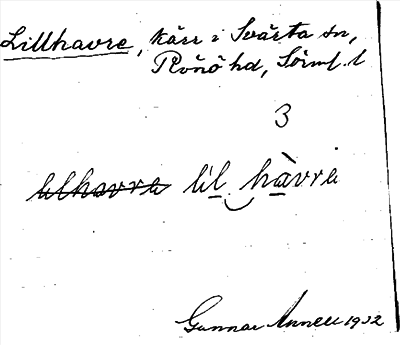 Lillhavre, kärr i Svärta sn,
Rönö hd, Sörml. l
3
lilhavrə lil hàvrə
Gunnar Annell 1932